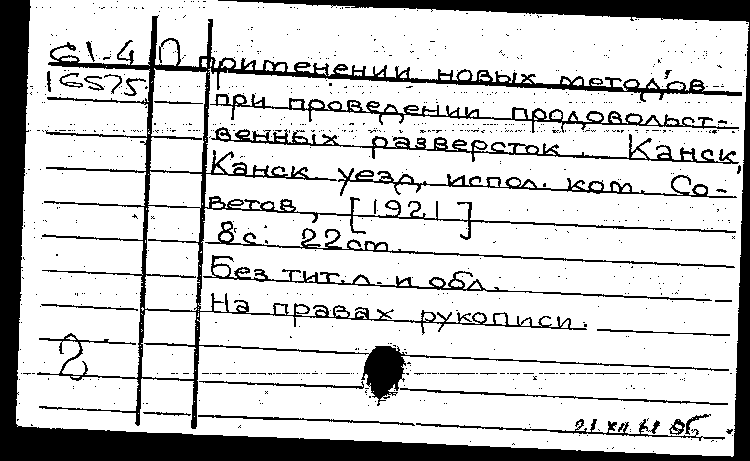 61-4 О применении новых методов
16575 при проведении продовольст-
венных разверсток. Канск,
Канск. уезд. испол. ком. Со-
ветов, [1921]
8 с. 22 cm.
Без тит. л. и обл.
На правах рукописи.
2
21 XII 61